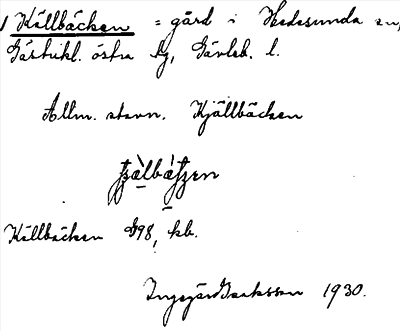 1 Källbäcken = gård i Hedesunda sn,
Gästrikl. östra tg, Gävleb. l.
Allm. stavn. Kjällbäcken
Källbäcken 1798, kb.
Ingegärd Isaksson 1930.